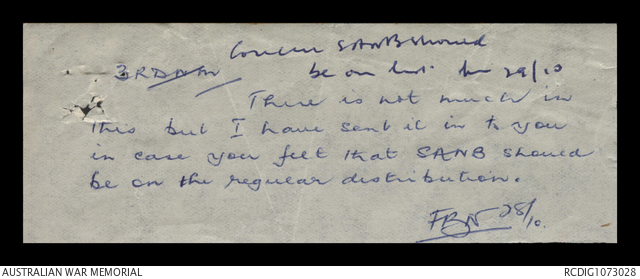 Concur SANB should
3RDNM be on list. 29/10
There is not much in
this but I have sent it in to you
in case you felt that SANB should
be on the regular distribution.
FBN 28/10.
AUSTRALIAN WAR MEMORIAL
RCDIG1073028